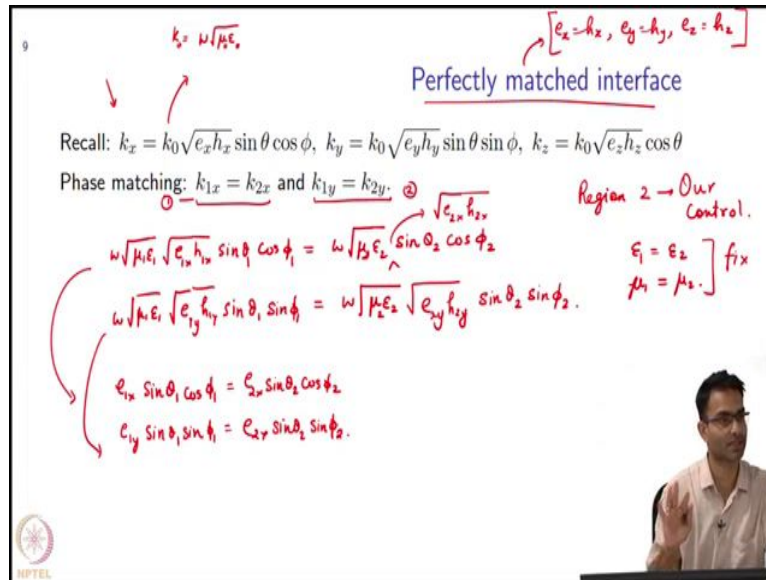 9
k₀ = ω√μ₀ε₀
[e_x = h_x, e_y = h_y, e_z = h_z]
Perfectly matched interface
Recall: k_x = k_0√(e_x h_x) sin θ cos φ, k_y = k_0√(e_y h_y) sin θ sin φ, k_z = k_0√(e_z h_z) cos θ
Phase matching: k_{1x} = k_{2x} and k_{1y} = k_{2y}.
① ②
Region 2 → Our control.
√(e_{2x} h_{2x})
ω√(μ₁ε₁) √(e_{1x} h_{1x}) sin θ₁ cos φ₁ = ω√(μ₂ε₂) ^ sin θ₂ cos φ₂
ε₁ = ε₂
μ₁ = μ₂. ] fix
ω√(μ₁ε₁) √(e_{1y} h_{1y}) sin θ₁ sin φ₁ = ω√(μ₂ε₂) √(e_{2y} h_{2y}) sin θ₂ sin φ₂.
e_{1x} sin θ₁ cos φ₁ = e_{2x} sin θ₂ cos φ₂
e_{1y} sin θ₁ sin φ₁ = e_{2y} sin θ₂ sin φ₂.
NPTEL